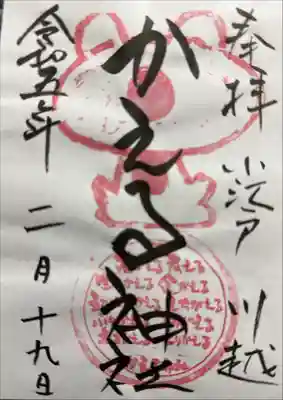 奉拝 小江戸 川越
かえる神社
令和五年 二月十九日